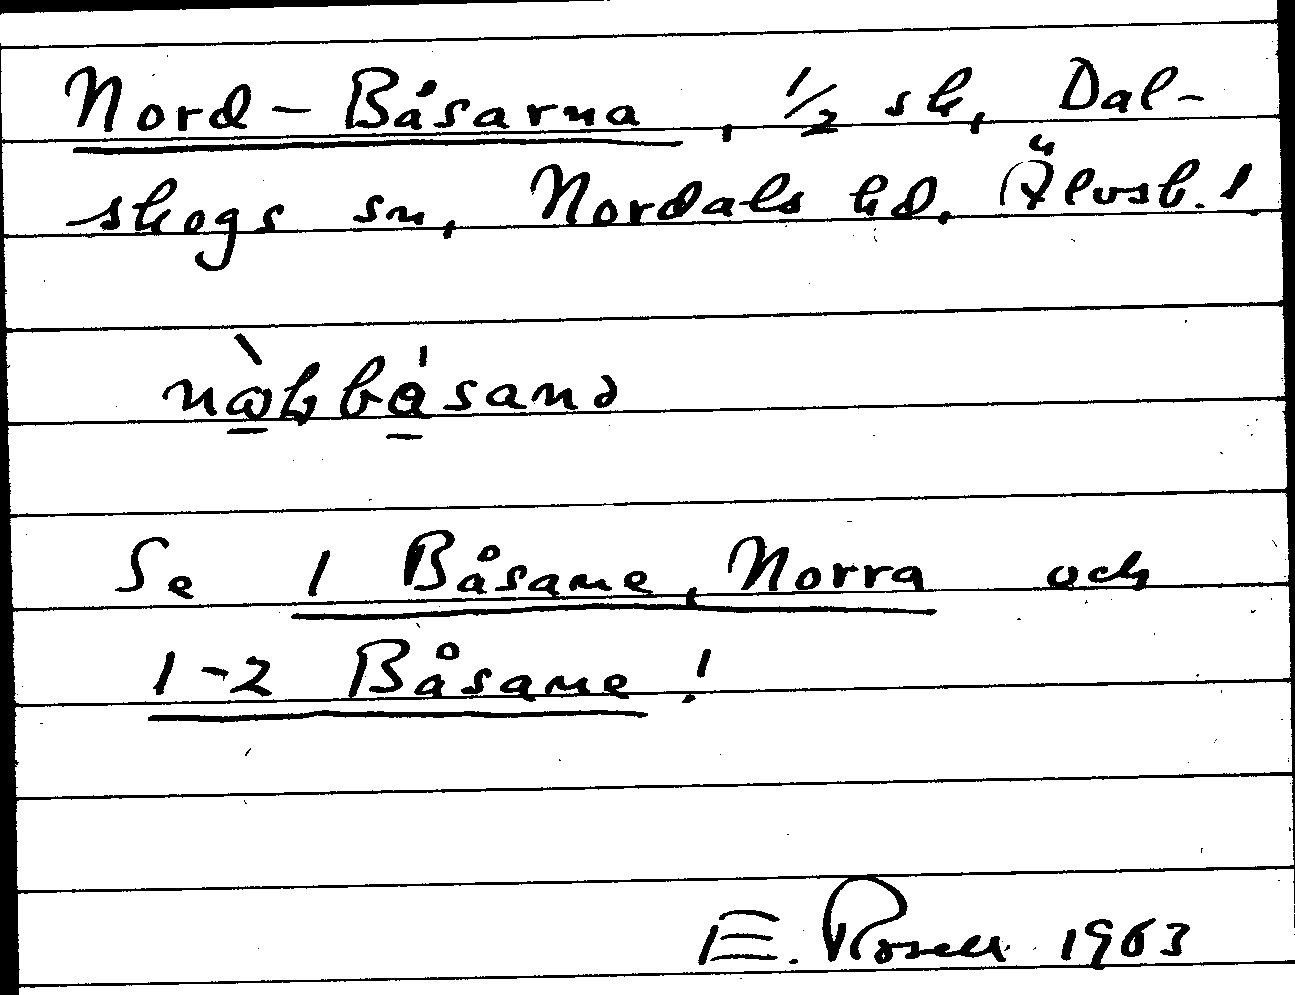 Nord-Båsarna, 1/2 sk, Dal-
skogs sn, Nordals hd. Älvsb. l
Se 1 Båsane, Norra och
1-2 Båsane!
E. Rosell 1963